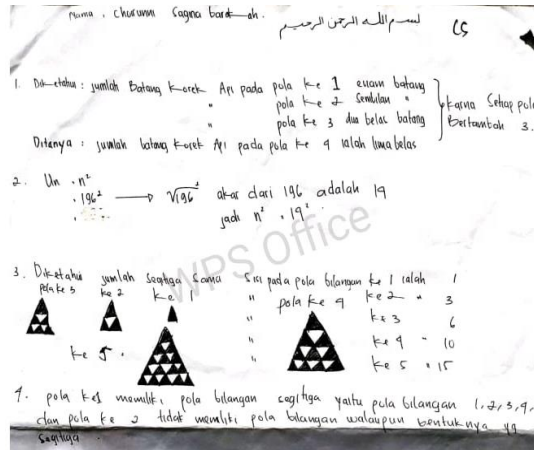 Nama . Churunni Sagina barokah.
بسم الله الرحمن الرحيم
1. Diketahui : jumlah Batang korek Api pada pola ke 1 enam batang
" pola ke 2 Sembilan "
" pola ke 3 dua belas batang
karna Setiap pola Bertambah 3.
Ditanya : jumlah batang korek Api pada pola ke 4 ialah lima belas
2. Un . n²
. 196² → √196² akar dari 196 adalah 14
jadi n² . 14²
WPS Office
3. Diketahui jumlah Segitiga Sama Sisi pada pola bilangan ke 1 ialah 1
pola ke 3 ke 2 ke 1 " pola ke 4 ke 2 " 3
" ke 3 6
" ke 4 " 10
ke 5 . " ke 5 " 15
4. pola ke 1 memiliki pola bilangan segitiga yaitu pola bilangan 1,2,3,4,
dan pola ke 2 tidak memiliki pola bilangan walaupun bentuknya yg
Segitiga